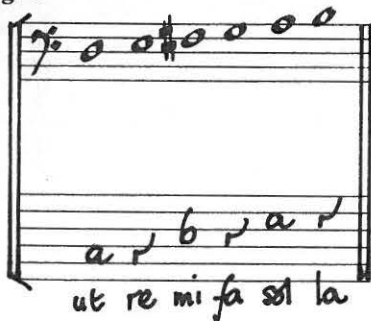 a r b r a r
ut re mi fa sol la